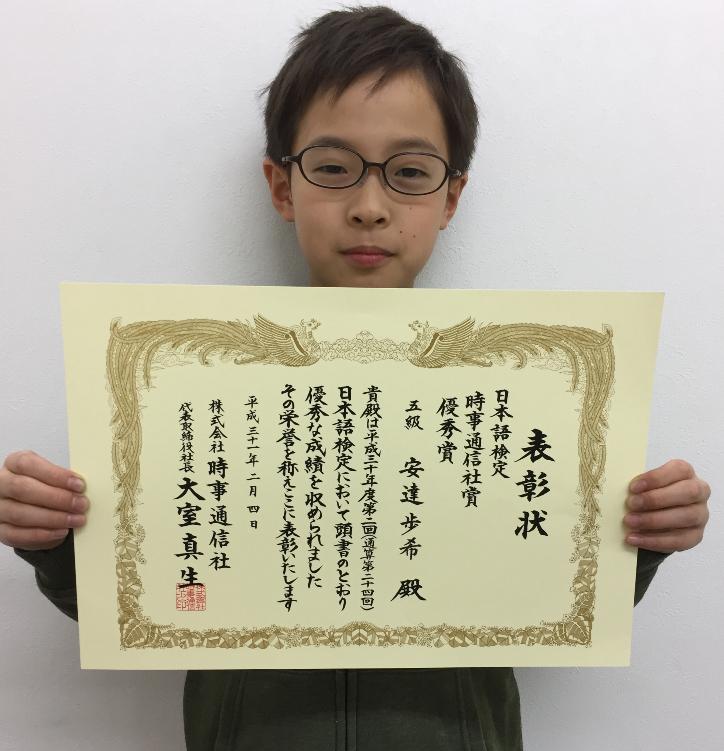 表彰状
日本語検定
時事通信社賞
優秀賞
五級 安達歩希 殿
貴殿は平成三十年度第二回(通算第二十四回)
日本語検定において頭書のとおり
優秀な成績を収められました
その栄誉を称えここに表彰いたします
平成三十一年二月四日
株式会社 時事通信社
代表取締役社長 大室真生